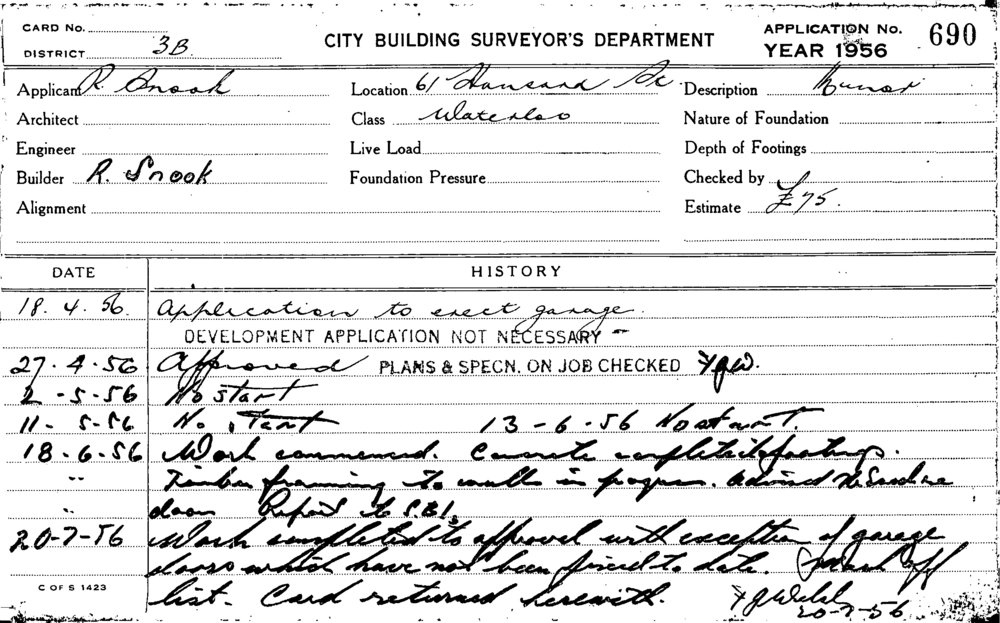 CARD No.
DISTRICT 3B
CITY BUILDING SURVEYOR'S DEPARTMENT
APPLICATION No. 690
YEAR 1956
Applicant R. Snook
Location 61 Hansard St
Description Minor
Architect
Class Waterloo
Nature of Foundation
Engineer
Live Load
Depth of Footings
Builder R. Snook
Foundation Pressure
Checked by
Alignment
Estimate £75.
DATE HISTORY
18.4.56. Application to erect garage.
DEVELOPMENT APPLICATION NOT NECESSARY -
27.4.56 Approved PLANS & SPECN. ON JOB CHECKED
2-5-56 No start
11-5-56 No start 13-6-56 No start.
18-6-56 Work commenced. Concrete completed footings.
" Timber framing to walls in progress. Advised
" doors Report to S.B.I.
20-7-56 Work completed to approval with exception of garage
doors which have not been fixed to date. Mark off
list. Card returned herewith.
20-7-56
C OF S 1423